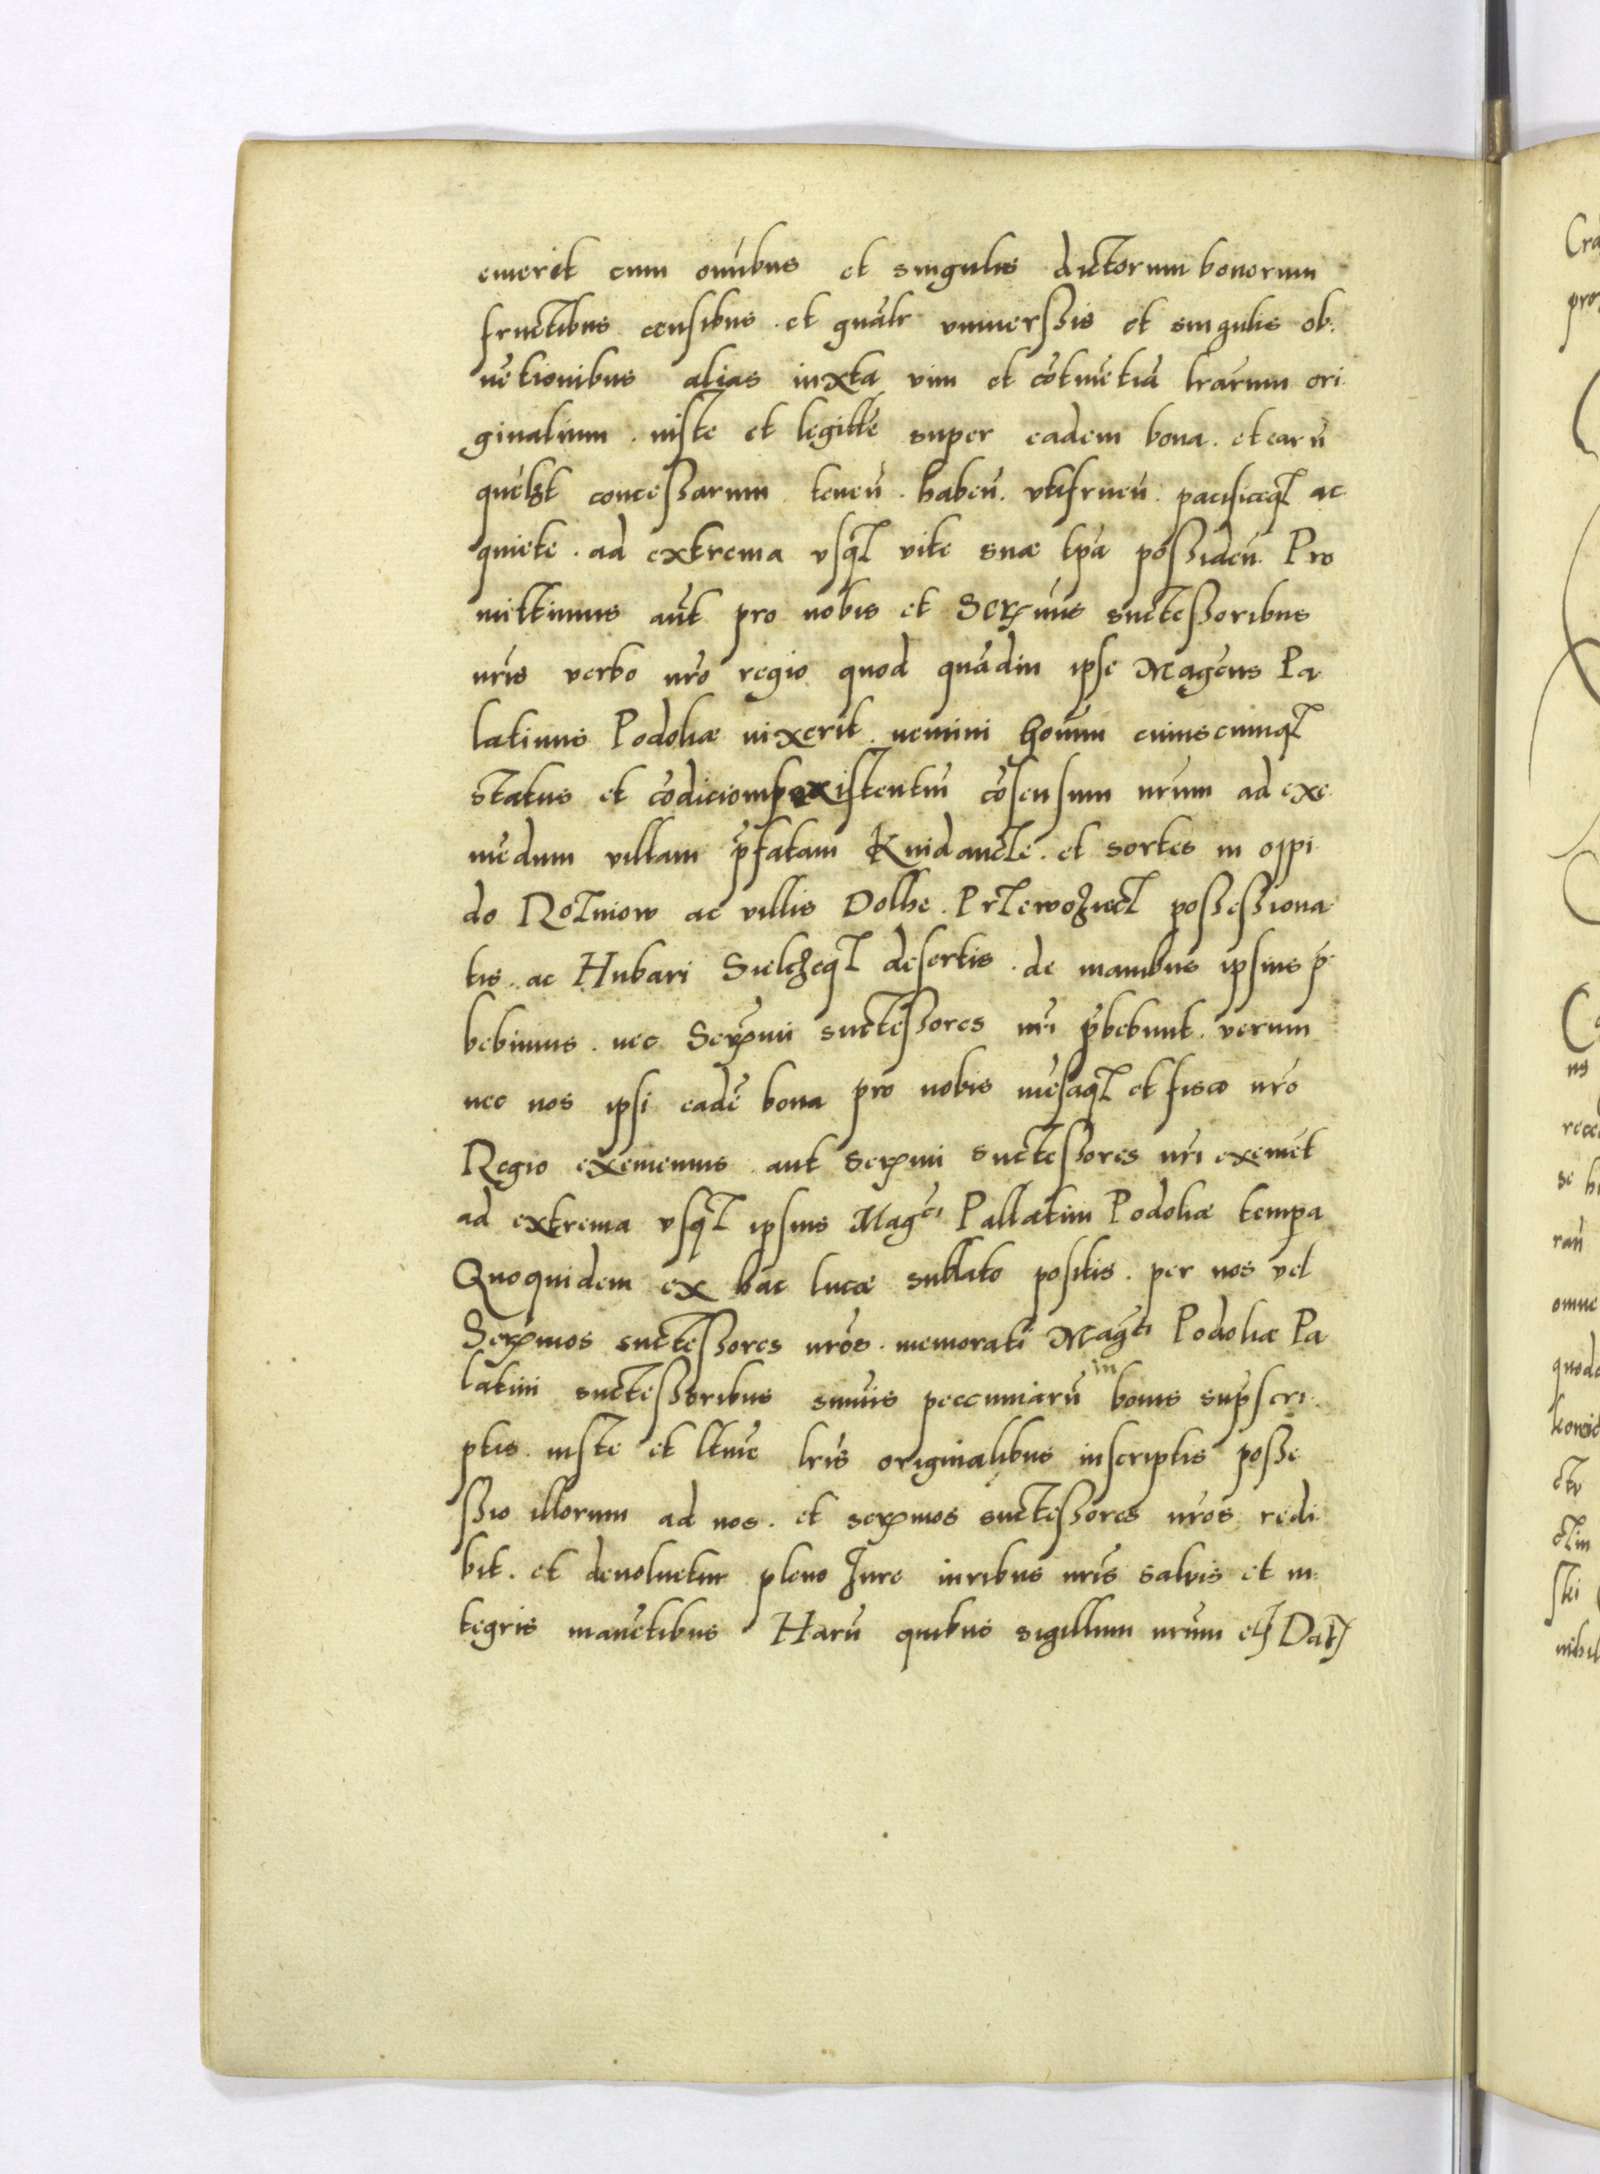 emerit cum om̄ibus et singulis dictorum bonorum
fructibus censibus et gñalr vniuerssis et singulis ob
uētionibus alias iuxta vim et cōtinētiā lrārum ori
ginalium iuste et legittē super eadem bona et earū
quēlzt concessarum teneñ habeñ vtifrueñ pacificeq ac
quiete ad extrema vsq vite suæ tpā possideñ Pro
mittimus aūt pro nobis et Serᵐis suctessoribus
nris verbo nrō regio quod quādiu ipse Magcus Pa
latinus Podoliæ uixerit nemini hoīum cuiuscumq
status et cōdicionis existentiū cōsensum nrum ad exe
mēdum villam p̄fatam Knidancze et sortes in oppi
do Roczniow ac villis Dolhe Przewoziecz possessiona
tis ac Hubari Sielczeq desertis de manibus ipsius p̄
bebimus nec Serᵐi suctessores nri p̄bebunt verum
nec nos ipsi eadē bona pro nobis mēsaq et fisco nrō
Regio exememus aut serᵐi suctessores nri exemēt
ad extrema vsq ipsius Magci Pallatini Podoliæ tempa
Quoquidem ex hac lucæ sublato positis per nos vel
Serᵐos suctessores nrōs memorati Magci Podoliæ Pa
latini suctessoribus sum̄is peccuniarū in bonis supscri
ptis iuste et lītme lris originalibus inscriptis posse
ssio illorum ad nos et serᵐos suctessores nros redi
bit et deuoluetur pleno Jure iuribus nris saluis et in
tegris manētibus Harū quibus sigillum nrum etz Datz